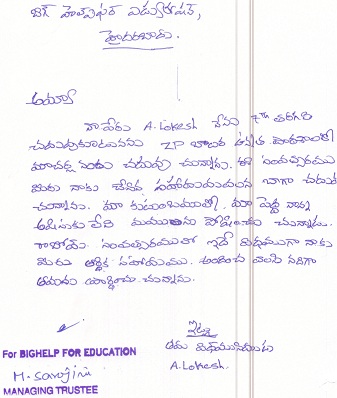 బిగ్ హెల్ప్ ఫర్ ఎడ్యుకేషన్,
హైదరాబాదు.
అయ్యా
నా పేరు A. Lokesh నేను 7th తరగతి
చదువుకుంటున్నాను ZP బాలుర ఉన్నత పాఠశాలలో
మాచర్ల నందు చదువు చున్నాను. ఈ సంవత్సరము
మీరు నాకు చేసిన సహాయమువలన బాగా చదువ
చున్నాను. మా కుటుంబములో మా పెద్ద నాన్న
లేని మమ్ములను పోషించు చున్నాడు.
రాబోయే సంవత్సరములో ఇదే విధముగా నాకు
మీరు ఆర్థిక సహాయము అందించ వలసినదిగా
చున్నాను.
ఇట్లు
తమ విధేయుడు
A. Lokesh.
For BIGHELP FOR EDUCATION
M. Sarojini
MANAGING TRUSTEE